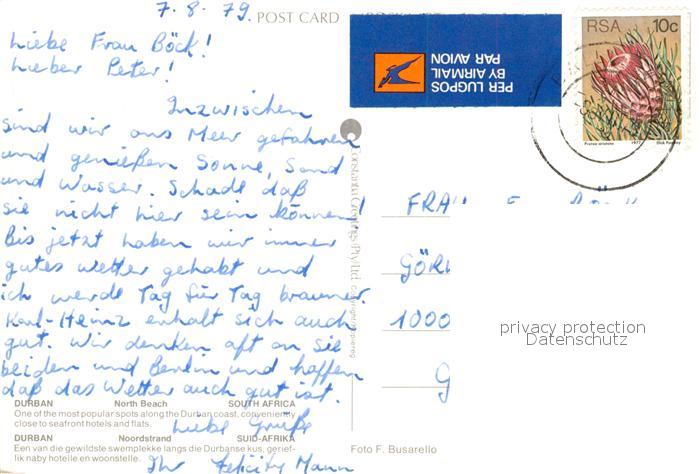 7.8.79.
POST CARD
Liebe Frau Böck!
Lieber Peter!
Inzwischen
sind wir ans Meer gefahren
und genießen Sonne, Sand
und Wasser. Schade daß
sie nicht hier sein können!
Bis jetzt haben wir immer
gutes wetter gehabt und
ich werde Tag für Tag brauner.
Karl-Heinz erhält sich auch
gut. Wir denken oft an Sie
beiden und Berlin und hoffen
daß das Wetter auch gut ist.
Liebe Grüße
Ihr Felicity Mann
DURBAN North Beach SOUTH AFRICA
One of the most popular spots along the Durban coast, conveniently
close to seafront hotels and flats.
DURBAN Noordstrand SUID-AFRIKA
Een van die gewildste swemplekke langs die Durbanse kus, gerief-
lik naby hotelle en woonstelle.
Foto F. Busarello
PER LUGPOS
BY AIRMAIL
PAR AVION
RSA 10c
Protea aristata 1977
1000
privacy protection
Datenschutz